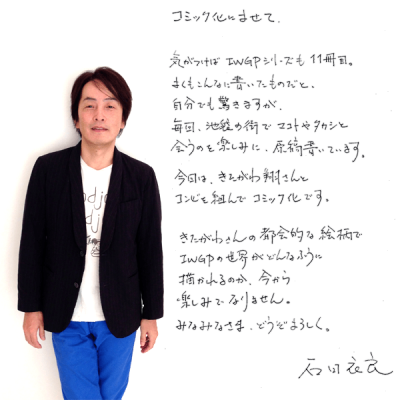 コミック化によせて。
気がつけばIWGPシリーズも11冊目。
よくもこんなに書いたものだと、
自分でも驚きますが、
毎回、池袋の街でマコトやタカシと
会うのを楽しみに、原稿書いています。
今回は、きたがわ翔さんと
コンビを組んでコミック化です。
きたがわさんの都会的な絵柄で
IWGPの世界がどんなふうに
描かれるのか、今から
楽しみでなりません。
みなみなさま、どうぞよろしく。
石田衣良